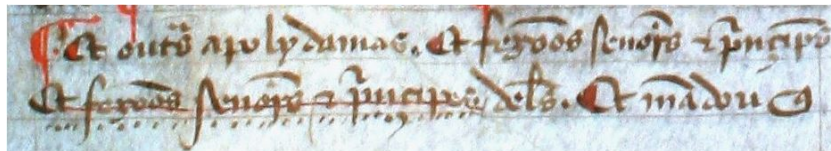 Et outs apolydamas. Et fezoos senors & prinçipes
Et fezoos senors & prinçipes dels. Et mādou q